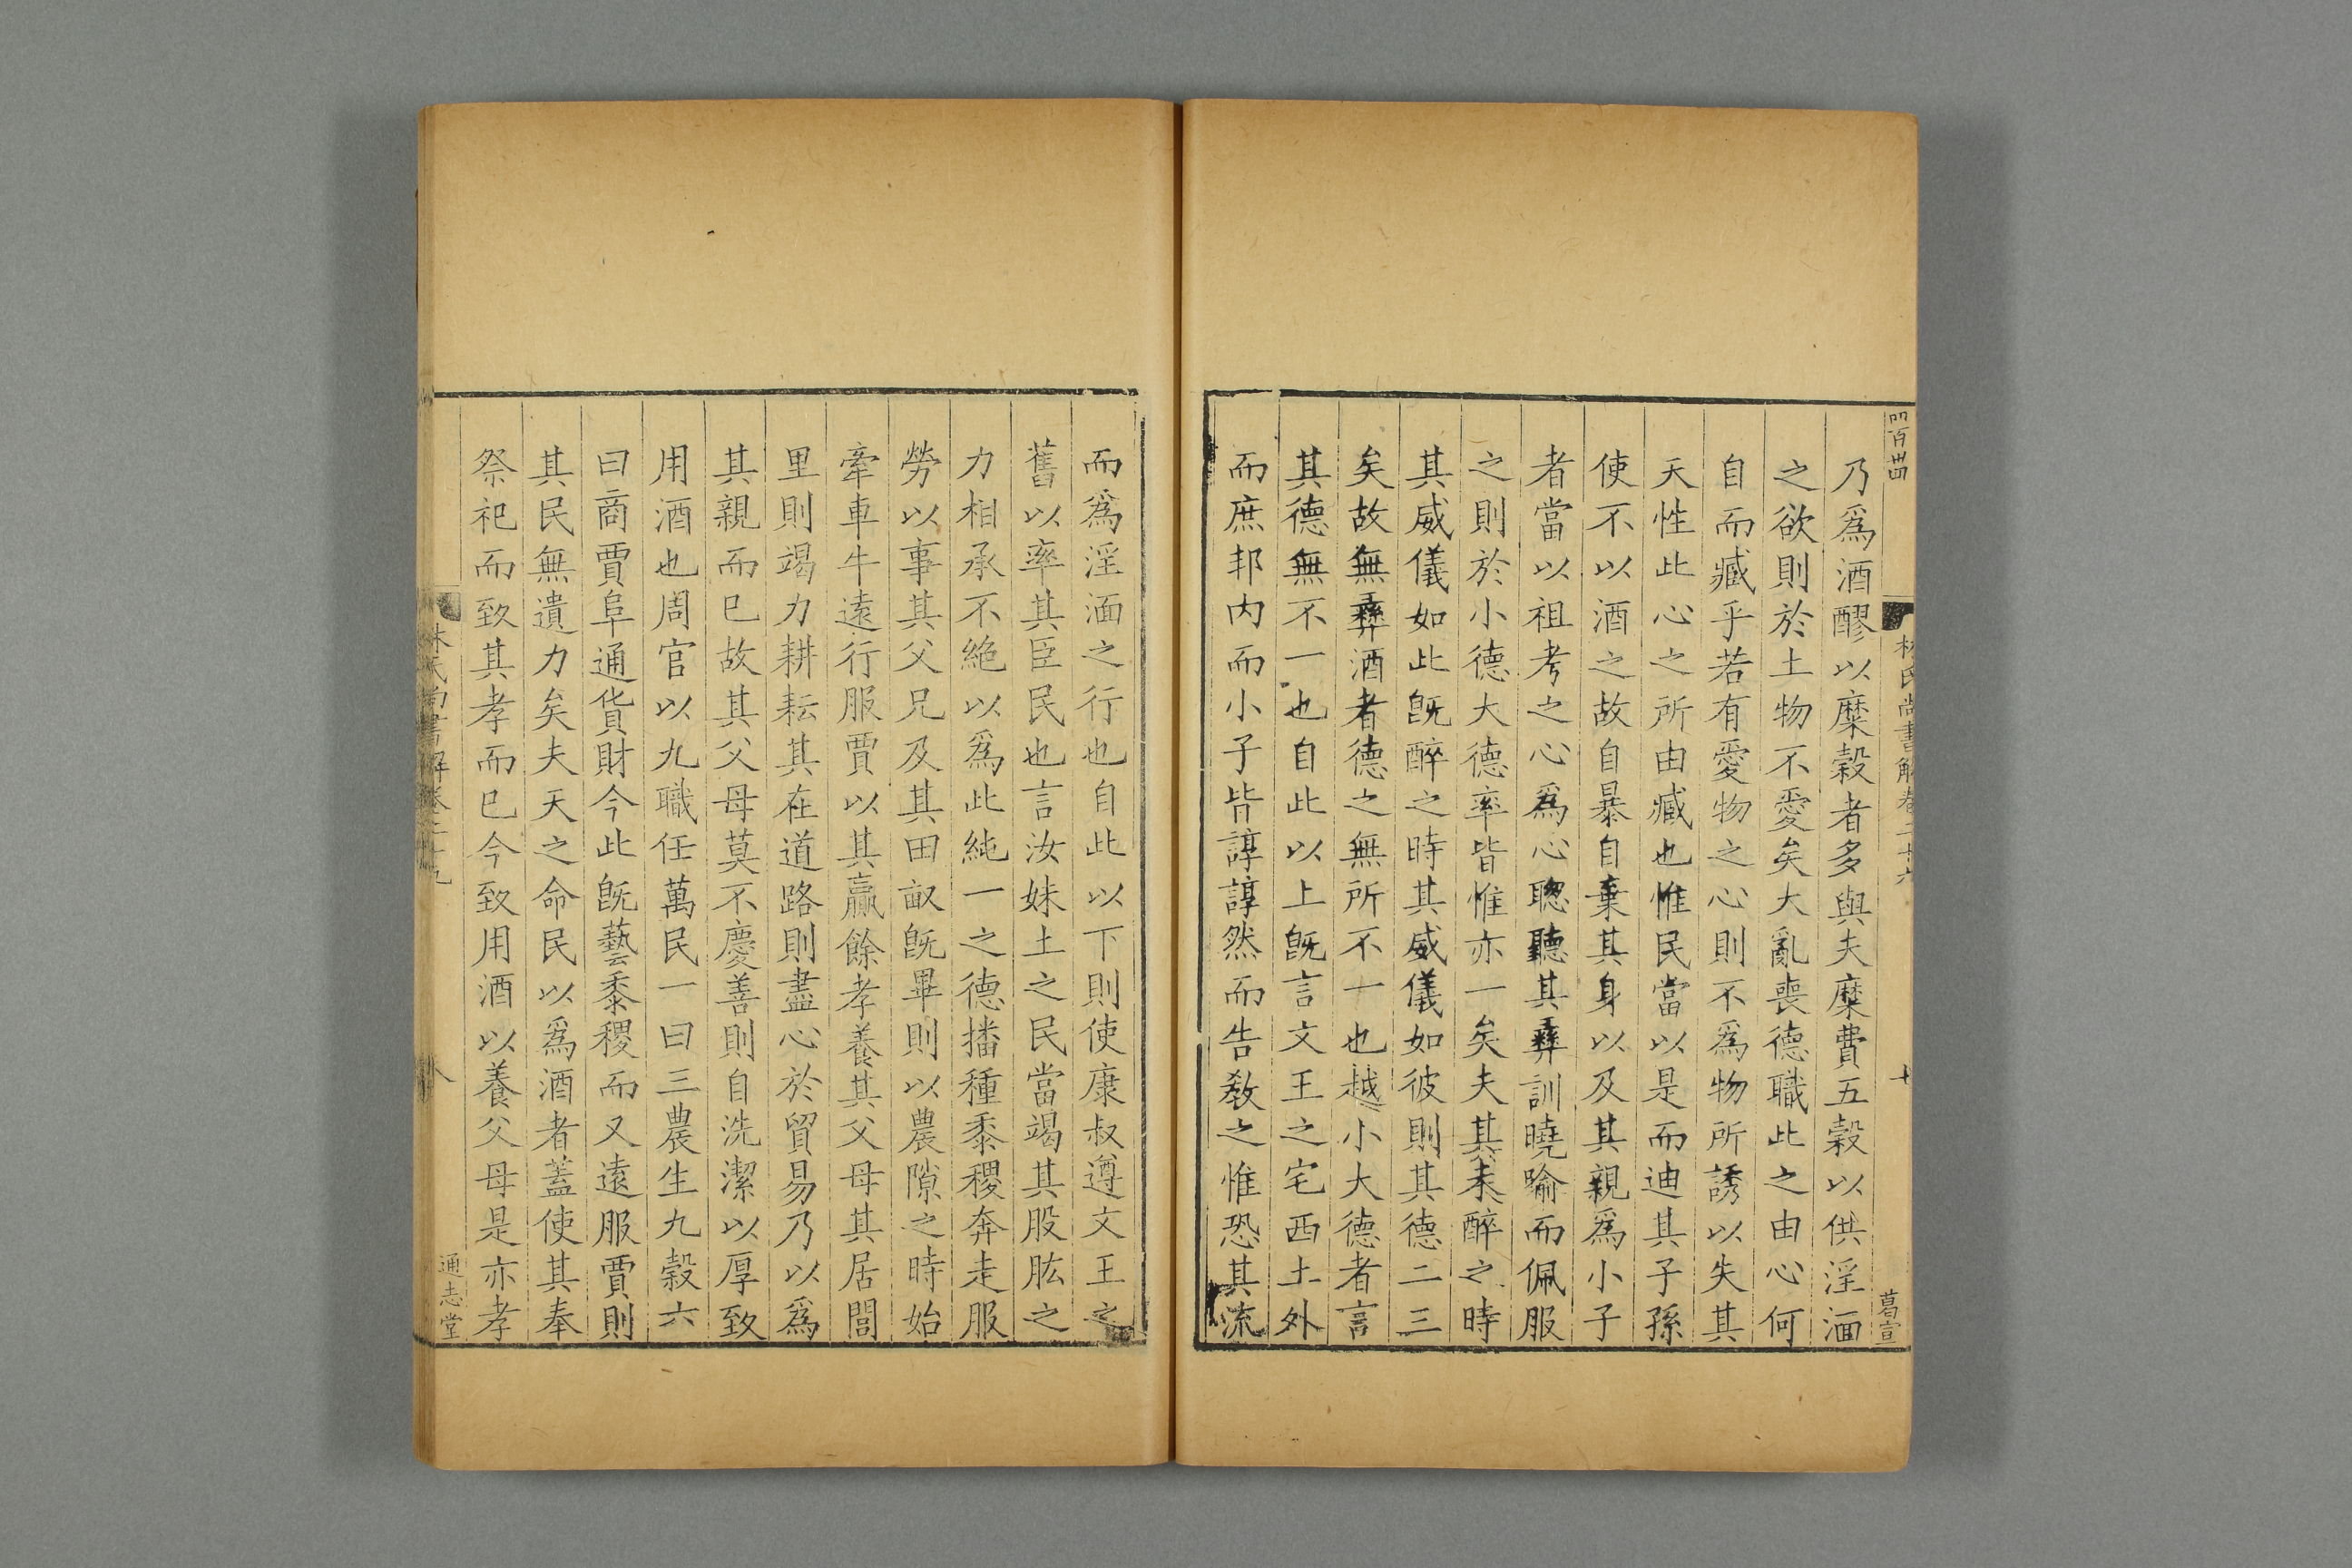 乃爲酒醪以糜穀者多與夫糜費五穀以供淫湎
之欲則於土物不愛矣大亂喪德職此之由心何
自而臧乎若有愛物之心則不爲物所誘以失其
天性此心之所由臧也惟民當以是而迪其子孫
使不以酒之故自暴自棄其身以及其親爲小子
者當以祖考之心爲心聦聽其彝訓曉喻而佩服
之則於小德大德率皆惟亦一矣夫其未醉之時
其威儀如此旣醉之時其威儀如彼則其德二三
矣故無彝酒者德之無所不一也越小大德者言
其德無不一也自此以上旣言文王之宅西土外
而庶邦内而小子皆諄諄然而告敎之惟恐其流
葛宣
而爲淫湎之行也自此以下則使康叔遵文王之
舊以率其臣民也言汝妹土之民當竭其股肱之
力相承不絶以爲此純一之德播種黍稷奔走服
勞以事其父兄及其田畝旣畢則以農隙之時始
牽車牛遠行服賈以其贏餘孝養其父母其居閭
里則竭力耕耘其在道路則盡心於貿易乃以爲
其親而已故其父母莫不慶善則自洗潔以厚致
用酒也周官以九職任萬民一曰三農生九穀六
曰商賈阜通貨財今此旣藝黍稷而又遠服賈則
其民無遺力矣夫天之命民以爲酒者蓋使其奉
祭祀而致其孝而已今致用酒以養父母是亦孝
通志堂